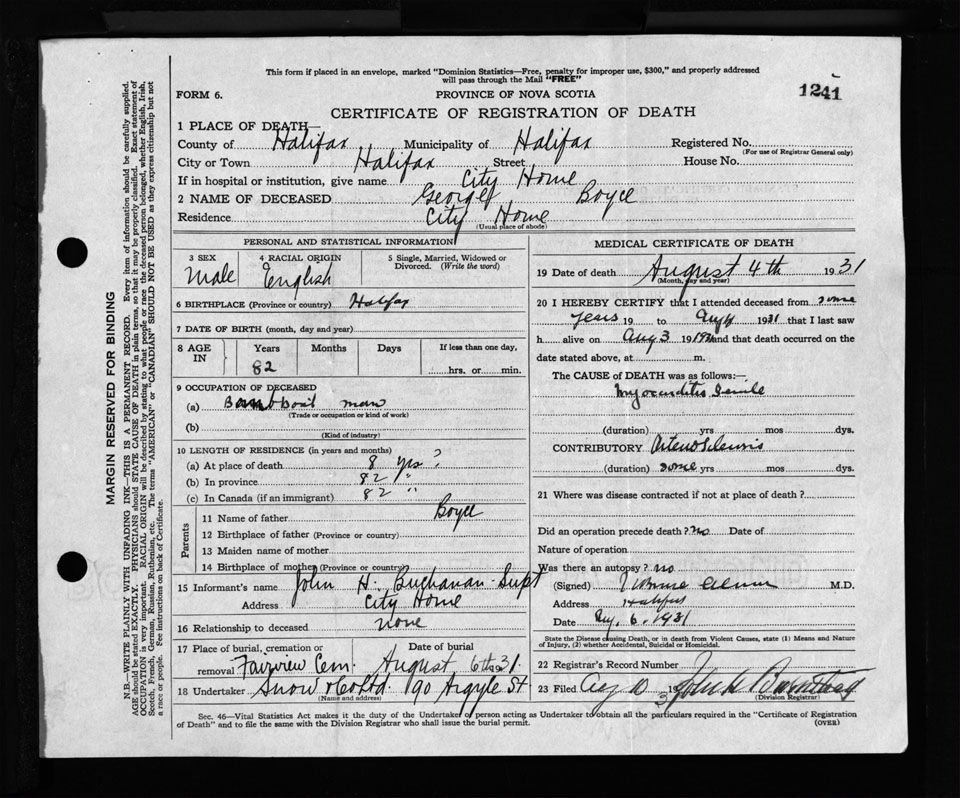 This form if placed in an envelope, marked "Dominion Statistics—Free, penalty for improper use, $300," and properly addressed
will pass through the Mail "FREE"
FORM 6.
PROVINCE OF NOVA SCOTIA
1241
CERTIFICATE OF REGISTRATION OF DEATH
1 PLACE OF DEATH—
County of Halifax Municipality of Halifax Registered No.
(For use of Registrar General only)
City or Town Halifax Street House No.
If in hospital or institution, give name City Home
2 NAME OF DECEASED George Boyce
Residence City Home
(Usual place of abode)
PERSONAL AND STATISTICAL INFORMATION
3 SEX 4 RACIAL ORIGIN 5 Single, Married, Widowed or
Divorced. (Write the word)
Male English
6 BIRTHPLACE (Province or country) Halifax
7 DATE OF BIRTH (month, day and year)
8 AGE IN Years Months Days If less than one day,
82 hrs. or min.
9 OCCUPATION OF DECEASED
(a) man
(Trade or occupation or kind of work)
(b)
(Kind of industry)
10 LENGTH OF RESIDENCE (in years and months)
(a) At place of death 8 yrs ?
(b) In province 82 "
(c) In Canada (if an immigrant) 82 "
Parents
11 Name of father Boyce
12 Birthplace of father (Province or country)
13 Maiden name of mother
14 Birthplace of mother (Province or country)
15 Informant's name John H. Buchanan Supt
Address City Home
16 Relationship to deceased none
17 Place of burial, cremation or Date of burial
removal Fairview Cem. August 6th 31.
18 Undertaker Snow & Co Ltd. 190 Argyle St
(Name and address)
MEDICAL CERTIFICATE OF DEATH
19 Date of death August 4th 1931
(Month, day and year)
20 I HEREBY CERTIFY that I attended deceased from some
years 19 to Aug 4 1931 that I last saw
h alive on Aug 3 1931 and that death occurred on the
date stated above, at m.
The CAUSE of DEATH was as follows:—
Myocarditis Senile
(duration) yrs mos dys.
CONTRIBUTORY
(duration) some yrs mos dys.
21 Where was disease contracted if not at place of death ?
Did an operation precede death ? no Date of
Nature of operation
Was there an autopsy ? no
(Signed) M.D.
Address Halifax
Date Aug. 6. 1931
State the Disease causing Death, or in death from Violent Causes, state (1) Means and Nature
of Injury, (2) whether Accidental, Suicidal or Homicidal.
22 Registrar's Record Number
23 Filed Aug 10 31 John
(Division Registrar)
Sec. 46—Vital Statistics Act makes it the duty of the Undertaker or person acting as Undertaker to obtain all the particulars required in the "Certificate of Registration
of Death" and to file the same with the Division Registrar who shall issue the burial permit.
(OVER)
MARGIN RESERVED FOR BINDING
N.B.—WRITE PLAINLY WITH UNFADING INK—THIS IS A PERMANENT RECORD. Every item of information should be carefully supplied.
AGE should be stated EXACTLY. PHYSICIANS should STATE CAUSE OF DEATH in plain terms, so that it may be properly classified. Exact statement of
OCCUPATION is very important. RACIAL ORIGIN will be described by stating to what people or race the deceased person belonged, whether English, Irish,
Scotch, French, German, Russian, Ruthenian, etc. The terms "AMERICAN" or "CANADIAN" SHOULD NOT BE USED as they express citizenship but not
a race or people. Fee instructions on back of Certificate.